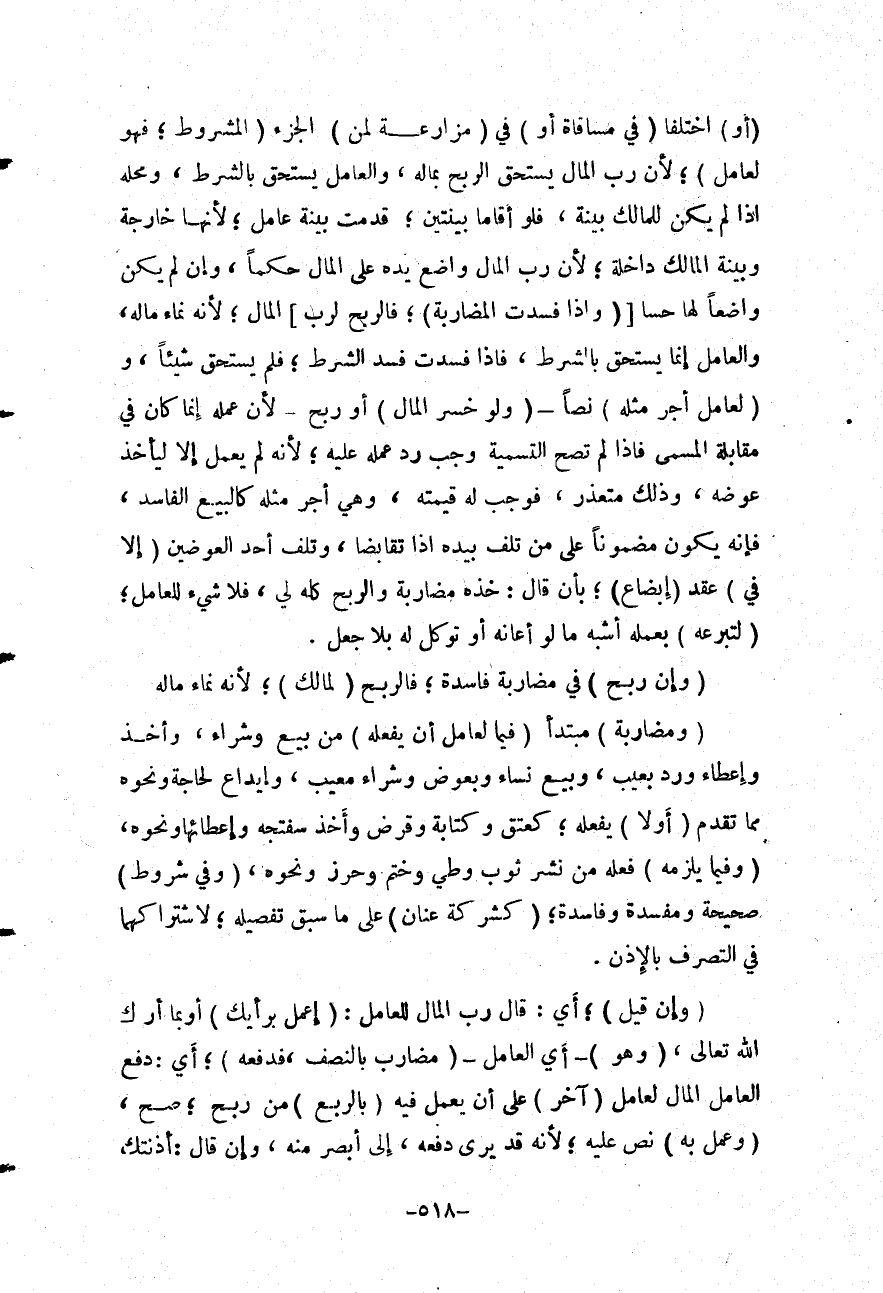 (أو) اختلفا ( في مساقاة أو ) في ( مزارعــة لمن ) الجزء ( المشروط ؛ فهو
لعامل ) ؛ لأن رب المال يستحق الربح بماله ، والعامل يستحق بالشرط ، ومحله
اذا لم يكن للمالك بينة ، فلو أقاما بينتين ؛ قدمت بينة عامل ؛ لأنهـا خارجة
وبينة المالك داخلة ؛ لأن رب المال واضع يده على المال حكماً ، وإن لم يكن
واضعاً لها حسا [( واذا فسدت المضاربة) ؛ فالربح لرب ] المال ؛ لأنه نماء ماله،
والعامل إنما يستحق بالشرط ، فاذا فسدت فسد الشرط ؛ فلم يستحق شيئاً ، و
( لعامل أجر مثله ) نصاً – ( ولو خسر المال ) أو ربح - لأن عمله إنما كان في
مقابلة المسمى فاذا لم تصح التسمية وجب رد عمله عليه ؛ لأنه لم يعمل إلا ليأخذ
عوضه ، وذلك متعذر ، فوجب له قيمته ، وهي أجر مثله كالبيـع الفاسد ،
فإنه يكون مضموناً على من تلف بيده اذا تقابضا ، وتلف أحد العوضين ( إلا
في ) عقد (إبضاع) ؛ بأن قال : خذه مضاربة والربح كله لي ، فلا شيء للعامل؛
( لتبرعه ) بعمله أشبه ما لو أعانه أو توكل له بلا جعل .
( وإن ربـح ) في مضاربة فاسدة ؛ فالربـح ( لمالك ) ؛ لأنه نماء ماله
( ومضاربة ) مبتدأ ( فيما لعامل أن يفعله ) من بيـع وشراء ، وأخـذ
وإعطاء ورد بعيب ، وبيـع نساء وبعوض وشراء معيب ، وإيداع لحاجة ونحوه
مما تقدم ( أولا ) يفعله ؛ كعتق وكتابة وقرض وأخذ سفتجه وإعطائها ونحوه،
( وفيما يلزمه ) فعله من نشر ثوب وطي وختم وحرز ونحوه ، ( وفي شروط )
صحيحة ومفسدة وفاسدة؛ ( كشركة عنان ) على ما سبق تفصيله ؛ لاشتراكهما
في التصرف بالإذن .
( وإن قيل ) ؛ أي : قال رب المال للعامل : ( إعمل برأيك ) أو بما أراك
الله تعالى ، ( وهو ) – أي العامل – ( مضارب بالنصف ، فدفعه ) ؛ أي : دفع
العامل المال لعامل ( آخر ) على أن يعمل فيه ( بالربـع ) من ربـح ؛ صـح ،
( وعمل به ) نص عليه ؛ لأنه قد يرى دفعه ، إلى أبصر منه ، وإن قال : أذنتك
-٥١٨-